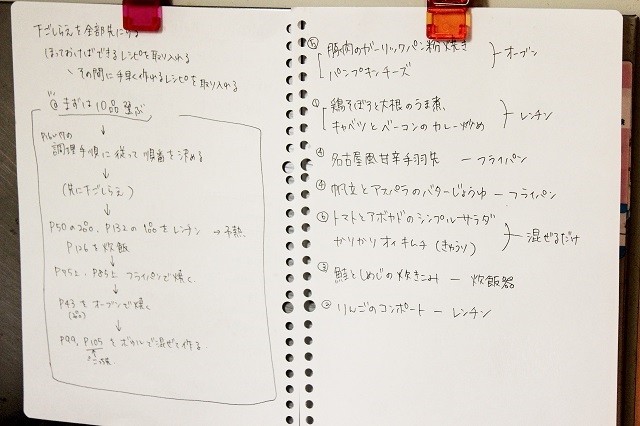 下ごしらえを全部先にする
ほっておけばできるレシピを取り入れる
その間に手早く作れるレシピを取り入れる
まずは10品選ぶ
↓
調理手順に従って順番を決める
↓
(先に下ごしらえ)
↓
P50の2品、P132の1品をレンチン → 予熱
P126を炊飯
↓
P85上 フライパンで焼く
↓
P43をオーブンで焼く
(2品)
↓
P99、P105をボウルで混ぜて作る
豚肉のガーリックパン粉焼き
パンプキンチーズ
オーブン
鶏そぼろと大根のうま煮
キャベツとベーコンのカレー炒め
レンチン
名古屋風甘辛手羽先 ー フライパン
帆立とアスパラのバターじょうゆ ー フライパン
トマトとアボカドのシンプルサラダ
かりかりオイキムチ (きゅうり)
混ぜるだけ
鮭としめじの炊きこみ ー 炊飯器
りんごのコンポート ー レンチン